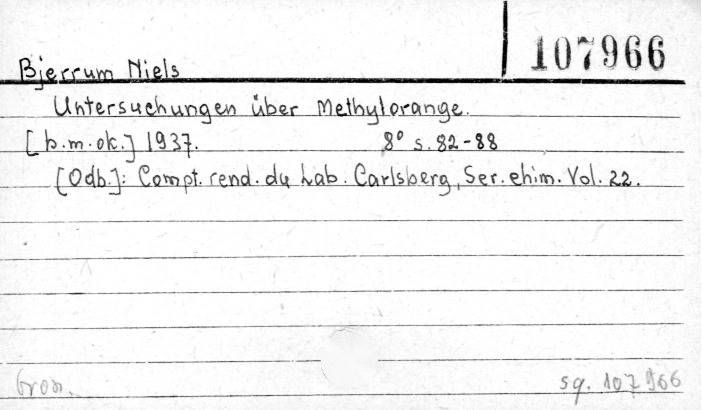 107966
Bjerrum Niels
Untersuchungen über Methylorange.
[b.m.ok.] 1937. 8° s. 82-88
[Odb.]: Compt. rend. du Lab. Carlsberg, Ser. chim. Vol. 22.
sq. 107966